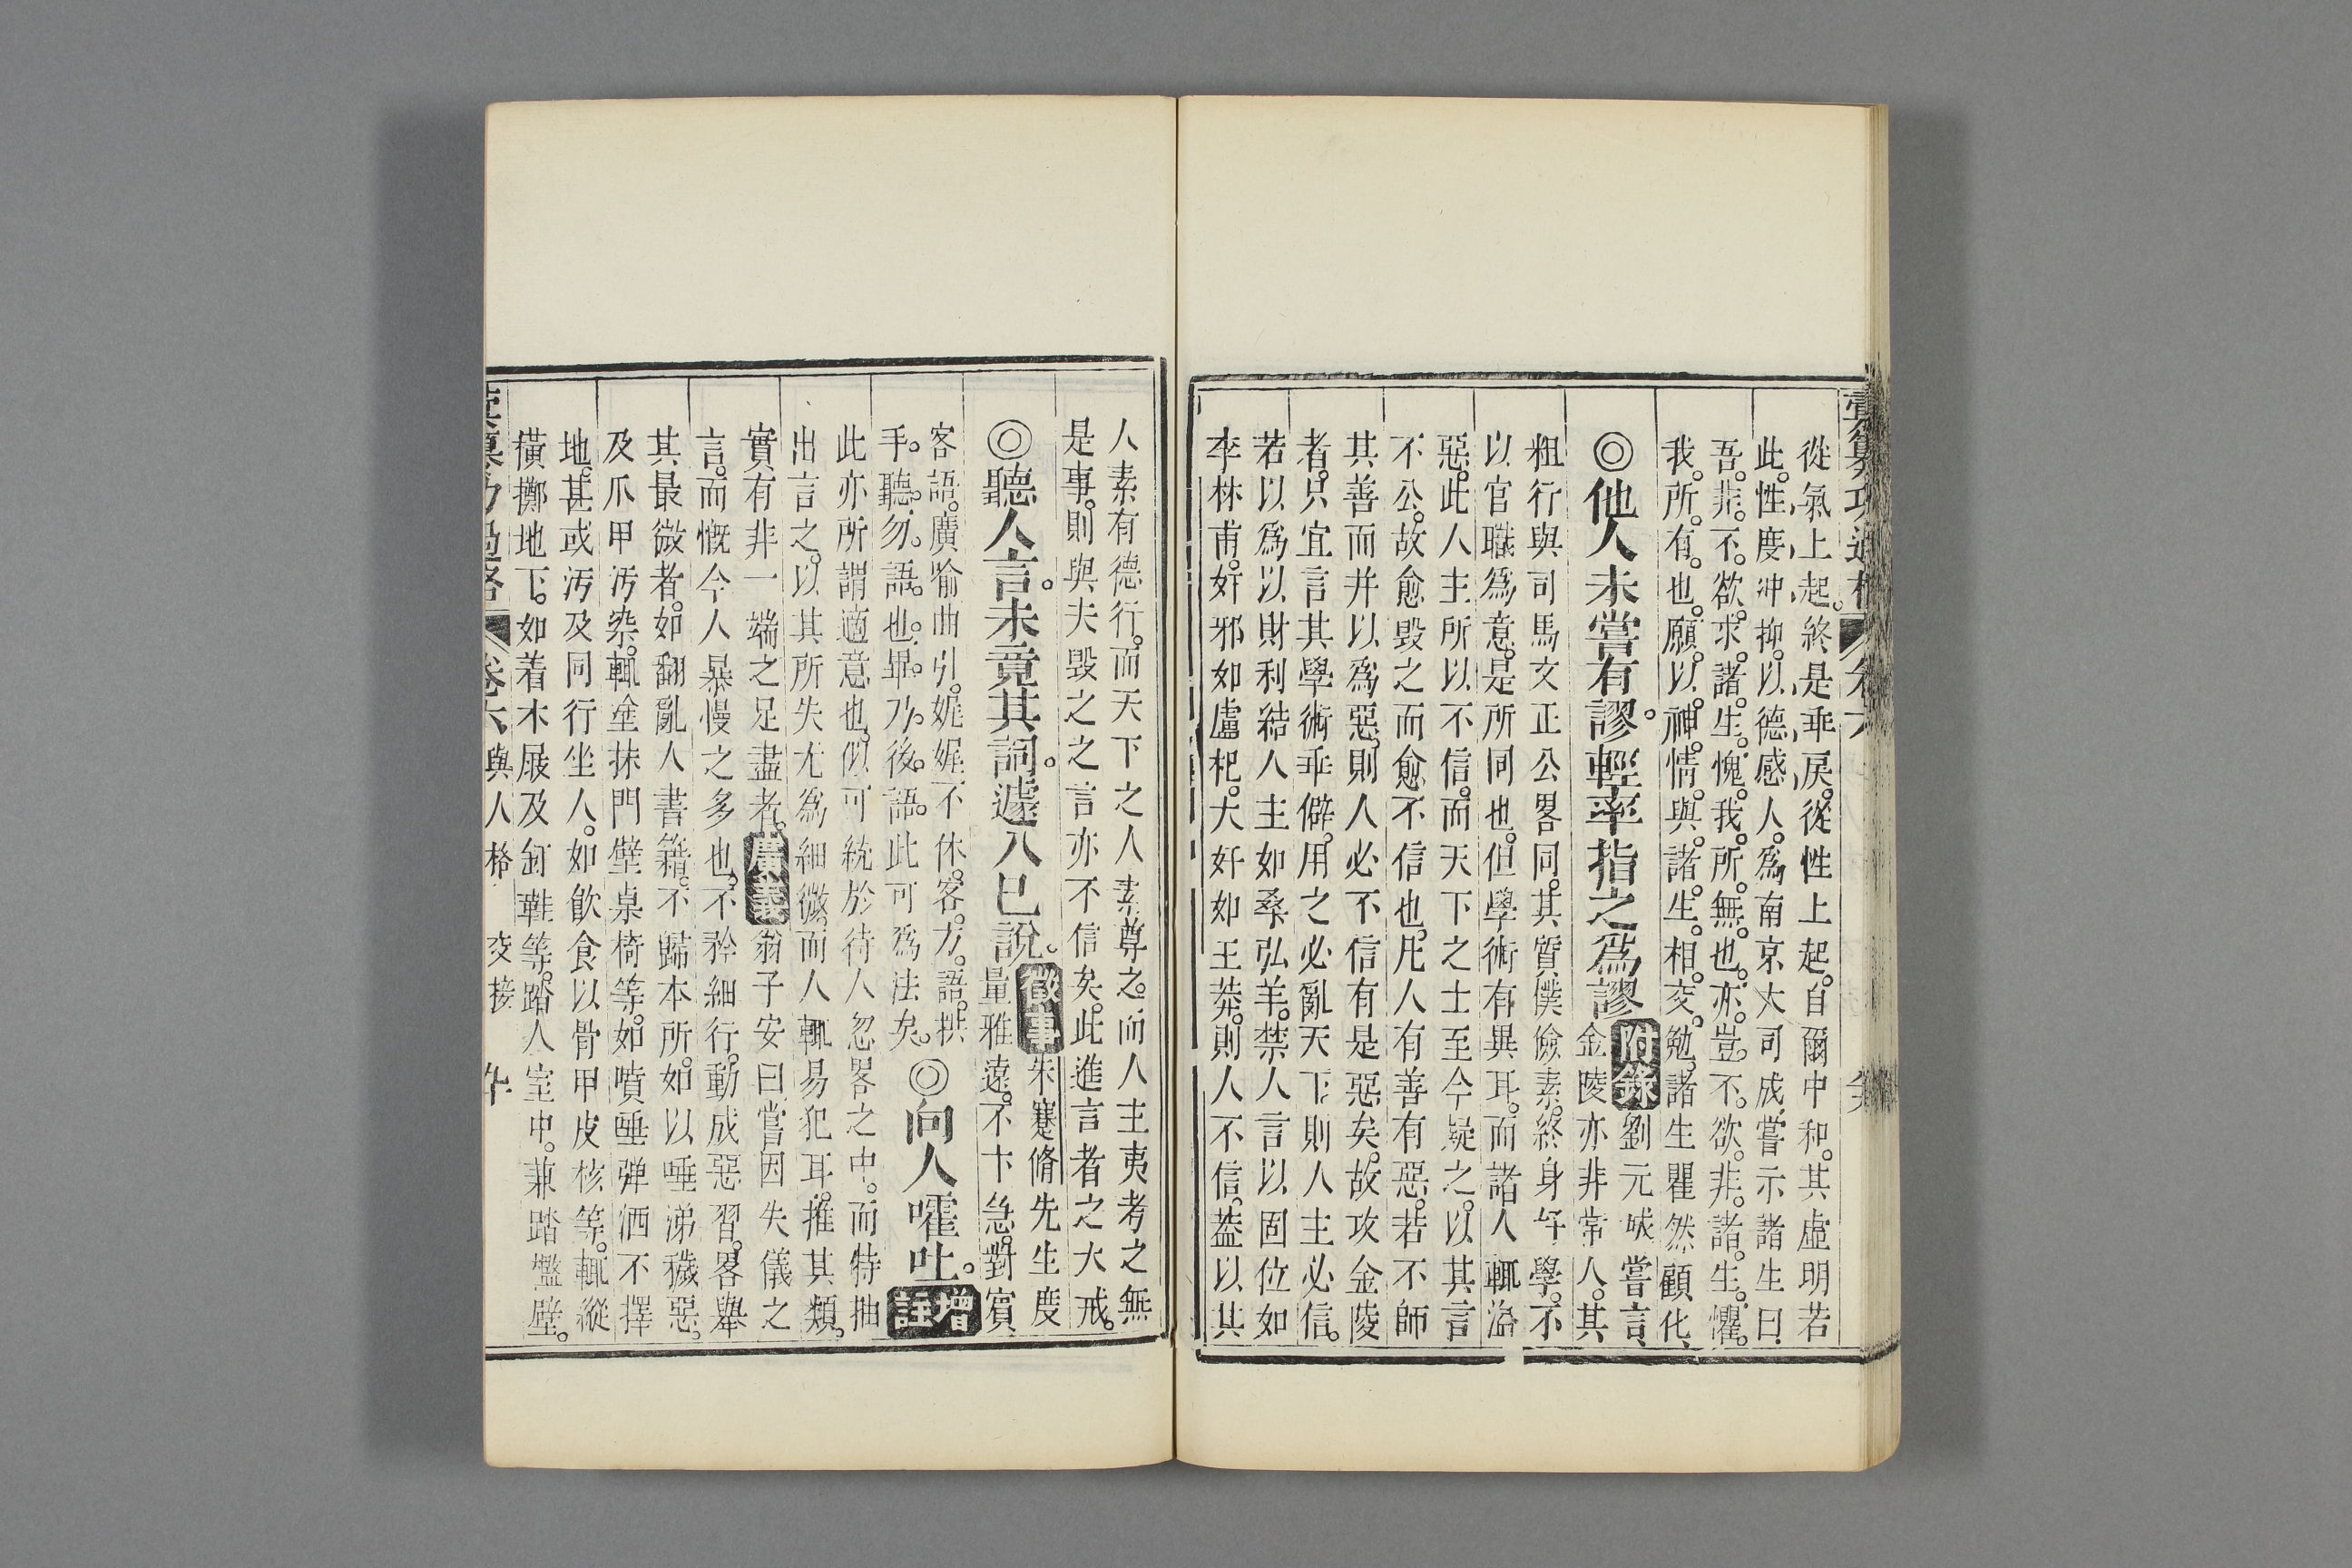 從氣上起。終是乖戾。從性上起。自爾中和。其虛明若
此。性度冲抑。以德感人。爲南京大司成。嘗示諸生曰、
吾。非。不。欲。求。諸。生。愧。我。所。無。也。亦。豈。不。欲。非。諸。生。懼。
我。所。有。也。願。以。神。情。與。諸。生。相。交。勉。諸生瞿然顧化、
◎他人未嘗有謬。輕率指之爲謬
附錄劉元城嘗言、
金陵亦非常人。其
粗行與司馬文正公畧同。其質僕儉素。終身好學。不
以官職爲意。是所同也。但學術有異耳。而諸人輒溢
惡。此人主所以不信。而天下之士至今疑之。以其言
不公。故愈毀之而愈不信也。凡人有善有惡。若不師
其善而并以爲惡。則人必不信有是惡矣。故攻金陵
者。只宜言其學術乖僻。用之必亂天下。則人主必信。
若以爲以財利結人主如桑弘羊。禁人言以固位如
李林甫。奸邪如盧杞。大奸如王莽。則人不信。葢以其
人素有德行。而天下之人素尊之。而人主夷考之無
是事。則與夫毀之之言亦不信矣。此進言者之大戒。
◎聽人言。未竟其詞。遽入己說。
徵事朱蹇脩先生度
量雅遠。不卞急。對賓
客語。廣喻曲引。娓娓不休。客。方。語。拱
手。聽。勿。語。也。畢。乃。後。語。此可爲法矣。
◎向人嚯吐。增註
此亦所謂適意也。似可統於待人忽畧之中。而特抽
出言之。以其所失尤爲細微而人輒易犯耳。推其類。
實有非一端之足盡者。廣義翁子安曰嘗因失儀之
言。而慨今人暴慢之多也。不矜細行。動成惡習。畧舉
其最微者。如翻亂人書籍。不歸本所。如以唾涕穢惡。
及爪甲汚染。輒塗抹門壁桌椅等。如噴唾彈洒不擇
地。甚或汚及同行坐人。如飲食以骨甲皮核等。輒縱
橫擲地下。如着木屐及釘鞋等。踏人室中。兼踏檻壁。
卷六 與人格 交接